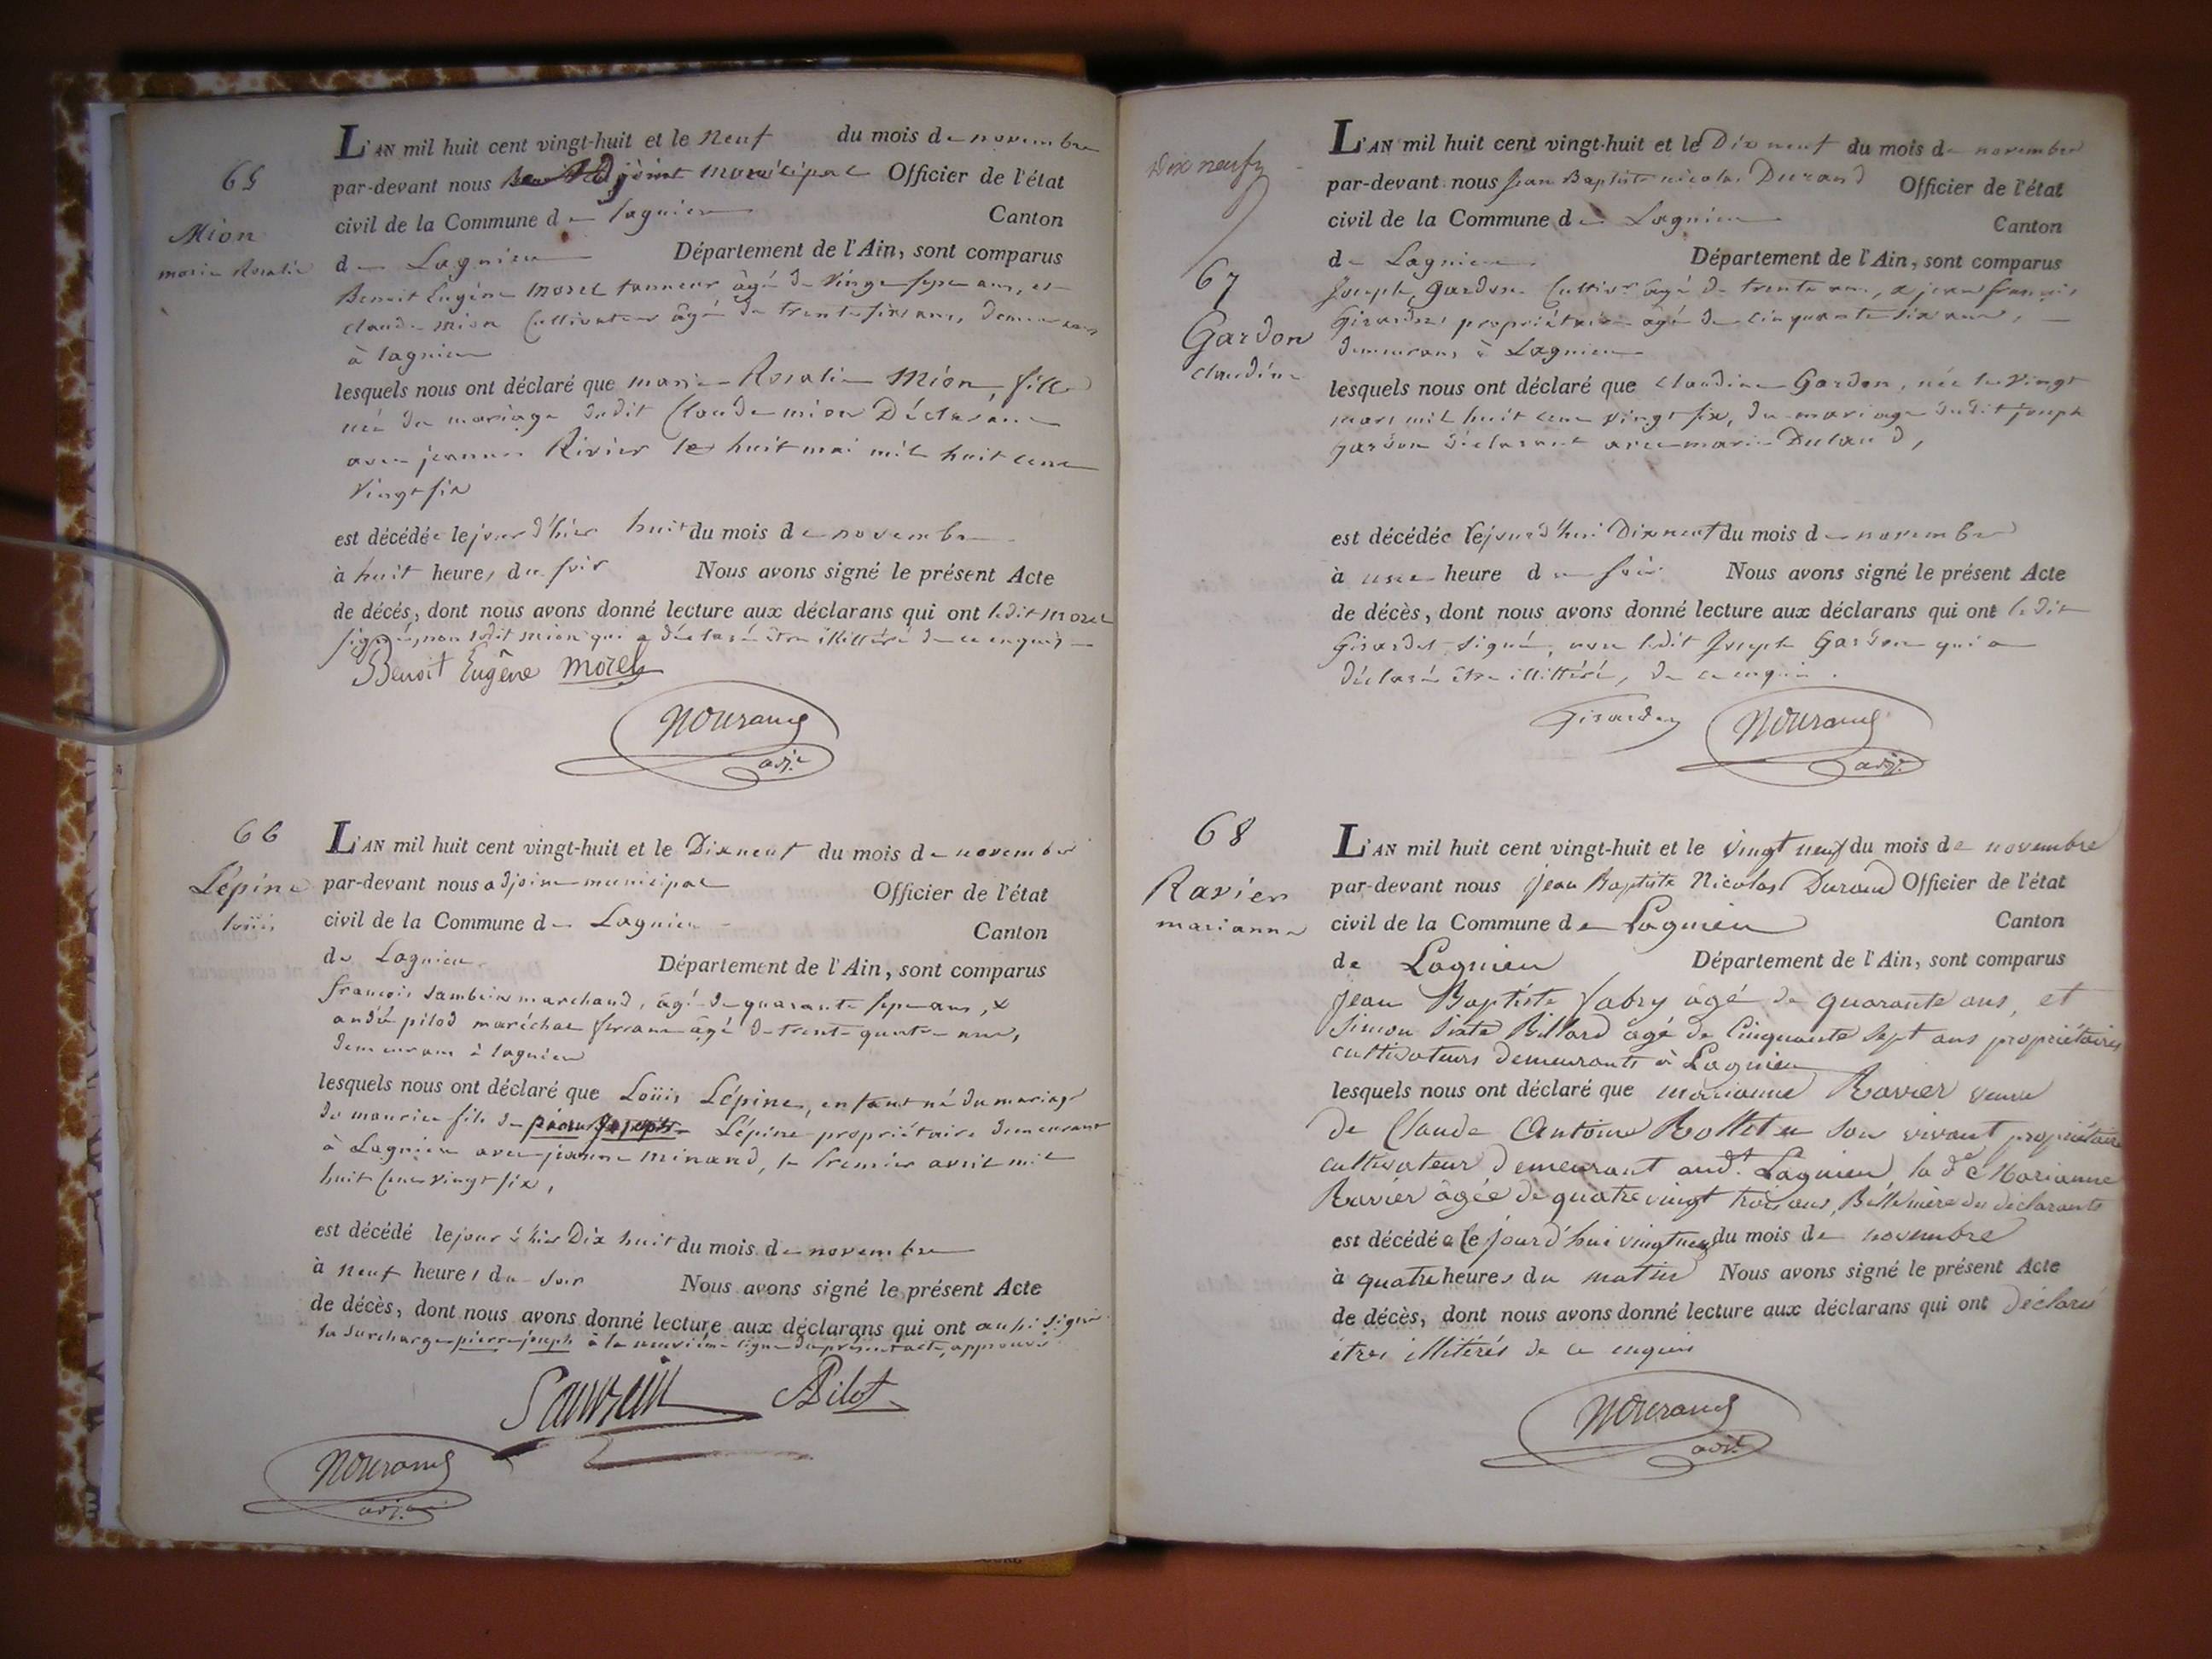 65
Mion
marie Rosalie
L'AN mil huit cent vingt-huit et le neuf du mois de novembre
par-devant nous adjoint municipal Officier de l'état
civil de la Commune de Lagnieu Canton
de Lagnieu Département de l'Ain, sont comparus
Benoit Eugène Morel tanneur âgé de vingt sept ans, et
claude mion Cultivateur âgé de trente six ans, demeurans
à lagnieu
lesquels nous ont déclaré que marie Rosalie Mion, fille
née du mariage dudit Claude mion Déclarant
avec jeanne Rivier le huit mai mil huit cent
vingt six
est décédée le jour d'hier huit du mois de novembre
à huit heures du soir Nous avons signé le présent Acte
de décés, dont nous avons donné lecture aux déclarans qui ont ledit morel
signé, non ledit mion qui a déclaré être illittéré de ce enquis
Benoit Eugêne Morel
NDurand
adj.
66
Lépine
louis
L'AN mil huit cent vingt-huit et le Dix neuf du mois de novembre
par-devant nous adjoint municipal Officier de l'état
civil de la Commune de Lagnieu Canton
de Lagnieu Département de l'Ain, sont comparus
françois marchand, âgé de quarante sept ans, &
andré pilod maréchal ferrant âgé de trente quatre ans,
demeurans à lagnieu
lesquels nous ont déclaré que Loüis Lépine, enfant né du mariage
de maurice fils de pierre joseph Lépine propriétaire demeurant
à Lagnieu avec jeanne minand, le premier avril mil
huit cent vingt six,
est décédé le jour d'hier Dix huit du mois de novembre
à neuf heures du soir Nous avons signé le présent Acte
de décès, dont nous avons donné lecture aux déclarans qui ont aussi signé
la surcharge pierre joseph à la neuvième ligne du présent acte, approuvé
APilot
NDurand
adj.
Dix neuf
67
Gardon
claudine
L'AN mil huit cent vingt-huit et le Dix neuf du mois de novembre
par-devant nous Jean Baptiste nicolas Durand Officier de l'état
civil de la Commune de Lagnieu Canton
de Lagnieu Département de l'Ain, sont comparus
Joseph Gardon Cultivr. âgé de trente ans, & jean françois
Girardet propriétaire âgé de cinquante six ans,
demeurans à Lagnieu
lesquels nous ont déclaré que claudine Gardon, née le vingt
mars mil huit cent vingt six, du mariage dudit joseph
gardon déclarant avec marie
est décédée le jourd'hui Dix neuf du mois de novembre
à une heure du soir Nous avons signé le présent Acte
de décès, dont nous avons donné lecture aux déclarans qui ont ledit
Girardet signé, non ledit Joseph Gardon qui a
déclaré être illittéré, de ce enquis.
Girardet
NDurand
adj.
68
Ravier
marianne
L'AN mil huit cent vingt-huit et le vingt neuf du mois de novembre
par-devant nous Jean Baptiste Nicolas Durand Officier de l'état
civil de la Commune de Lagnieu Canton
de Lagnieu Département de l'Ain, sont comparus
Jean Baptiste fabry âgé de quarante ans, et
Simon Billard âgé de Cinquante sept ans propriétaires
cultivateurs demeurants à Lagnieu
lesquels nous ont déclaré que marianne Ravier veuve
de Claude Antoine Rollet en son vivant propriétaire
cultivateur demeurant audt. Lagnieu, la de. Marianne
Ravier âgée de quatre vingt trois ans, Belle mère des déclarants
est décédée le jourd'hui vingt neuf du mois de novembre
à quatre heures du matin Nous avons signé le présent Acte
de décès, dont nous avons donné lecture aux déclarans qui ont déclaré
être illitérés de ce enquis
NDurand
adj.